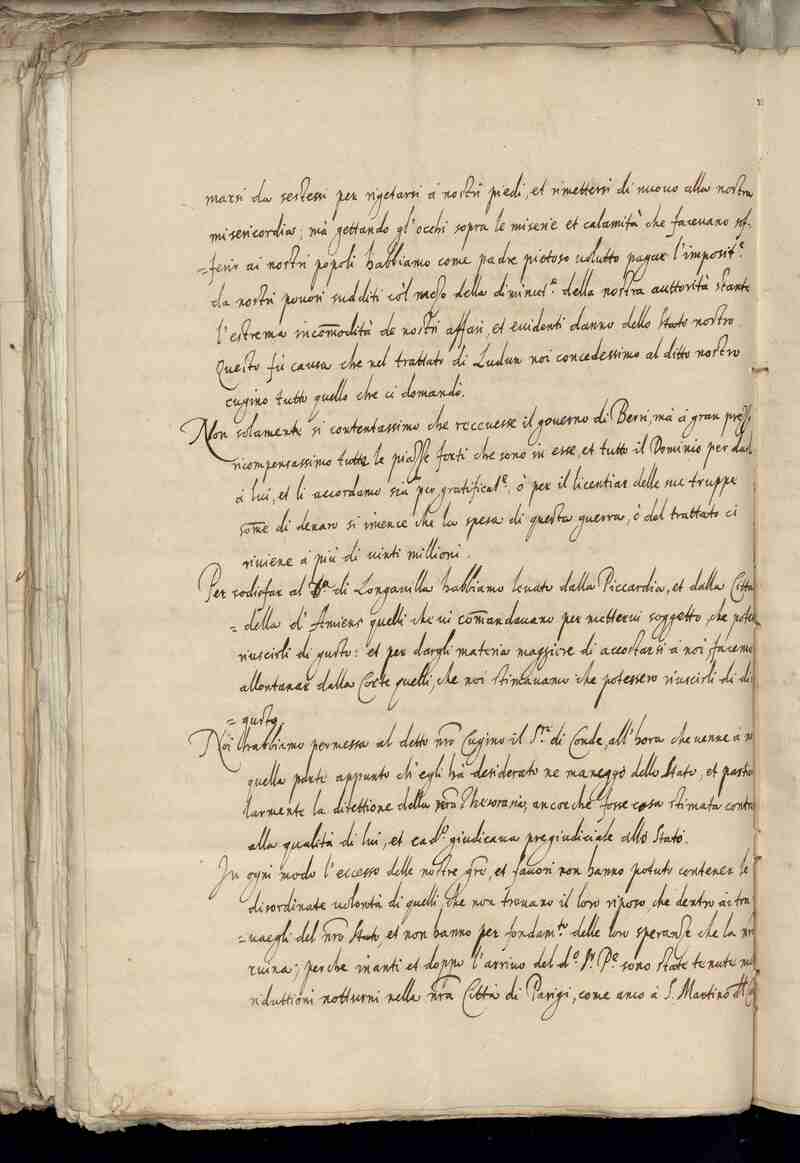 marsi da sestessi per rigetarsi à nostri piedi, et rimettersi di nuouo alla nostra
misericordia; mà gettando gl'occhi sopra le miserie et calamità che faceuano sof-
=ferir ai nostri popoli habbiamo come padre pietoso uolutto pagar l'imposit.e
da nostri poueri sudditi cól mezo della diminut.e della nostra auttorità stante
l'estrema incom̃odità de nostri affari, et euidenti danno dello stato nostro.
Questo fù causa che nel trattato di Ludun noi concedessimo al ditto nostro
cugino tutto quello che ci domandò.
Non solamente si contentassimo che riceuesse il gouerno di Berri, mà à gran prezzo
ricompensassimo tutte le piazze forti che sono in esse, et tutto il Dominio per darl
à lui, et li accordamo sia per gratificat.e, ò per il licentiar delle sue truppe
som̃e di denaro si inmence che la spesa di questa guerra, ò del trattato ci
riuiene a più di uinti millioni.
Per sodisfar al di Longauilla habbiamo leuato dalla Piccardia, et dalla Citta
=della d'Amiens quelli che ui com̃andauano per metterui soggetto, che potes
riuscirli di gusto: et per dargli materia maggiore di accostarsi à noi facemo
allontanar dalla Corte quelli, che noi stimauamo che potessero riuscirli di di
=gusto.
Noi habbiamo permesso al detto nr̃o Cugino il di Conde, all'hora che uenne à n
quella parte appunto ch'egli hà desiderato ne maneggi dello Stato, et partic
larmente la direttione della nr̃a Thesoraria, ancorche fosse cosa stimata contra
alla qualità di lui, et giudicaua pregiudiciale allo Stato.
In ogni modo l'eccesso delle nostre gr̃e, et fauori non hanno potuto contener le
disordinate uolontà di quelli, che non trouano il loro riposo, che dentro ai tra
=uagli del nr̃o stato, et non hanno per fondam.to delle loro speranze che la nr̃a
ruina; perche inanti et doppo l'arriuo del d.o P.e sono state tenute
riduttioni notturni nella nr̃a Città di Parigi, come anco à S. Martino